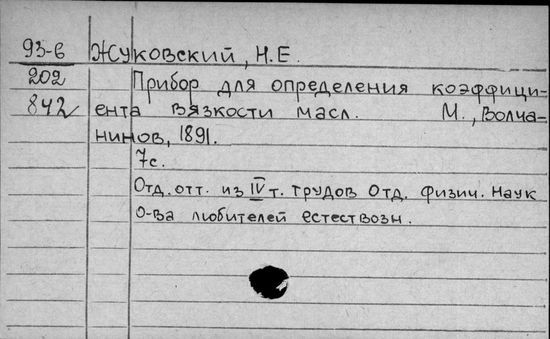 93-6 Жуковский, Н.Е.
202 Прибор для определения коэффици-
842 ента вязкости масл. М., Волча-
нинов, 1891.
7с.
Отд. отт. из IV т. трудов Отд. физич. наук
О-ва любителей естествозн.